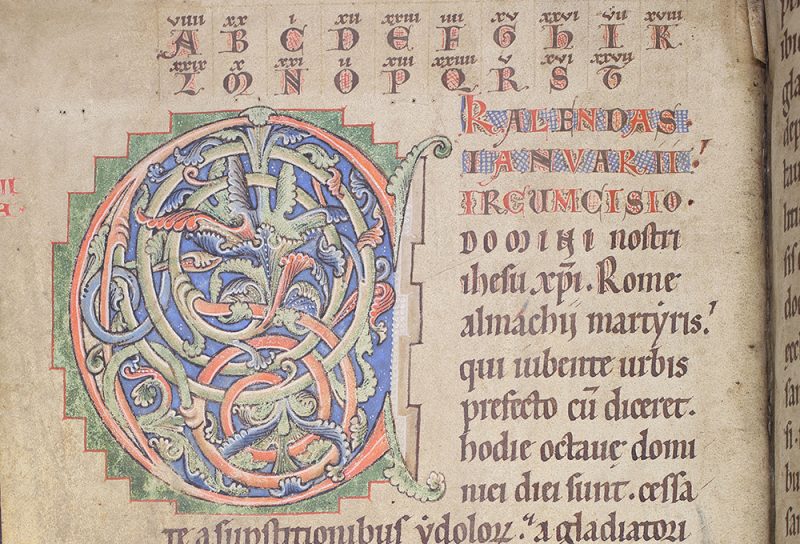 viiii xx i xii xxiii iiii xv xxvi vii xviii
A B C D E F G H I K
xxix x xxi ii xiii xxiiii v xvi xxvii
L M N O P Q R S T
KALENDAS
IANVARII.
CIRCUMCISIO.
DOMINI nostri
ihesu xp̄i. Rome
almachij martẏris.
qui iubente urbis
prefecto cū diceret.
hodie octauę domi
nici diei sunt. cessa
te a supstitionibus ẏdoloꝝ. a gladiatori